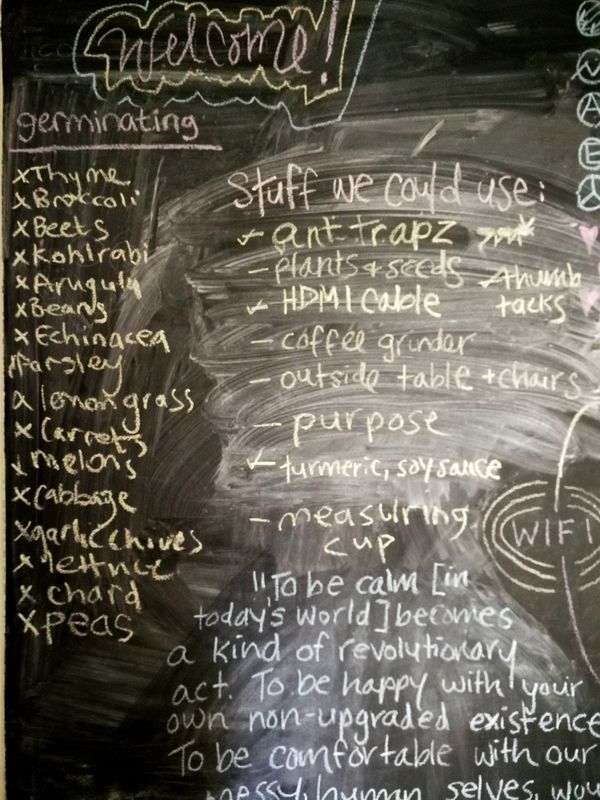 Welcome!
germinating
xThyme
xBroccoli
xBeets
xKohlrabi
xArugula
xBeans
xEchinacea
Parsley
x lemongrass
x Carrots
x melons
xCabbage
xgarlic chives
x lettuce
x chard
xpeas
Stuff we could use:
✓ ant trapz
- plants + seeds
✓ thumb tacks
✓ HDMI Cable
- coffee grinder
- outside table + chairs
- purpose
✓ turmeric, soy sauce
- measuring
cup
WIFI
"To be calm [in
today's world] becomes
a kind of revolutionary
act. To be happy with your
own non-upgraded existence
To be comfortable with our
messy, human selves, wou